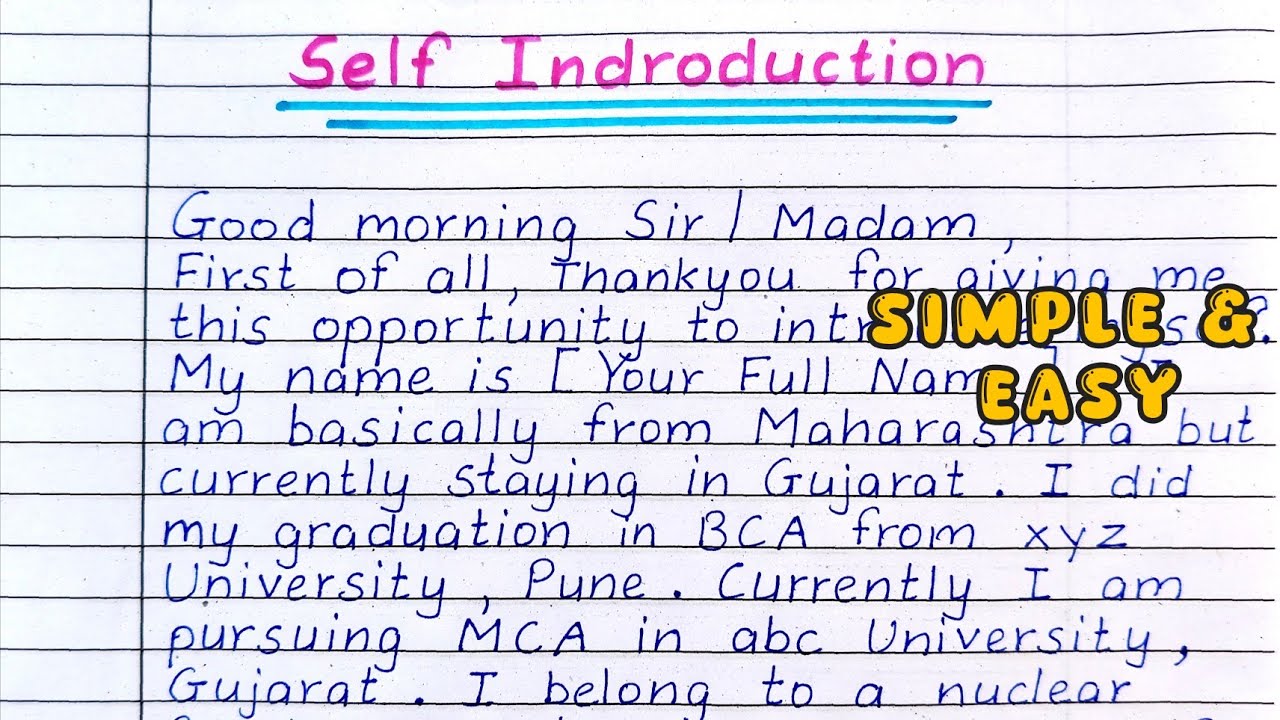 Self Indroduction
Good morning Sir / Madam,
First of all, Thankyou for giving me
this opportunity to
My name is [ Your Full
am basically from Maharashtra but
currently staying in Gujarat. I did
my graduation in BCA from xyz
University, Pune. Currently I am
pursuing MCA in abc University,
Gujarat. I belong to a nuclear
SIMPLE &
EASY